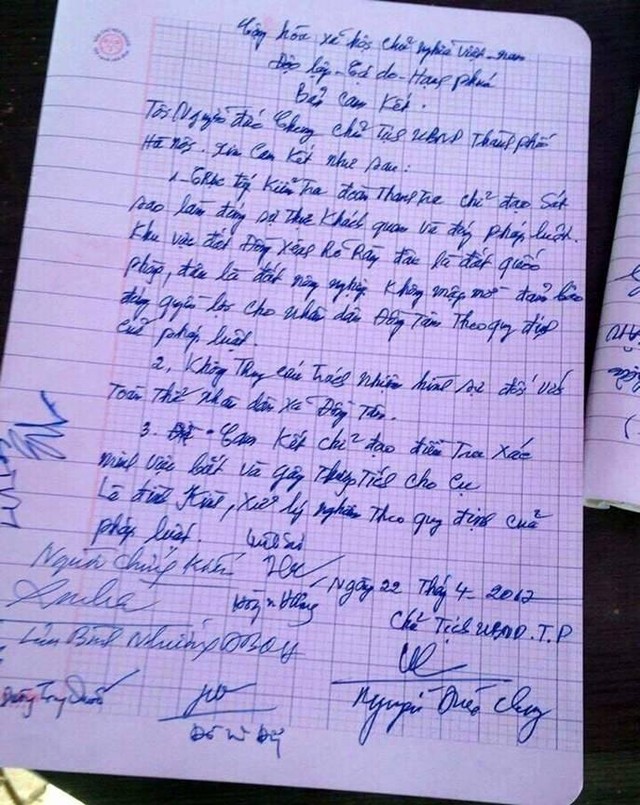 Cộng hòa xã hội chủ nghĩa Việt nam
Độc lập - Tự do - Hạnh phúc
Bản Cam Kết.
Tôi Nguyễn Đức Chung chủ tịch UBND Thành phố
Hà Nội. Xin Cam Kết như sau:
1 - Trực tiếp Kiểm Tra đoàn Thanh Tra chỉ đạo Sát
sao làm đúng sự thật Khách quan và đúng pháp luật.
Khu vực đất Đồng Sênh Rõ Ràng đâu là đất quốc
phòng, đâu là đất nông nghiệp. Không mập mờ đảm bảo
đúng quyền lợi cho nhân dân Đồng Tâm Theo quy định
của pháp luật.
2, Không Truy cứu Trách nhiệm hình sự đối với
Toàn Thể nhân dân xã Đồng Tâm.
3. Cam Kết chỉ đạo điều Tra Xác
minh việc bắt và gây Thương Tích cho Cụ
Lê đình Kình, Xử lý nghiêm Theo quy định của
pháp luật.
Người chứng Kiến
Ngày 22 Thg 4 - 2017
Chủ Tịch UBND.T.P
Lưu Bình Nhưỡng ĐBQH
Nguyễn Đức Chung